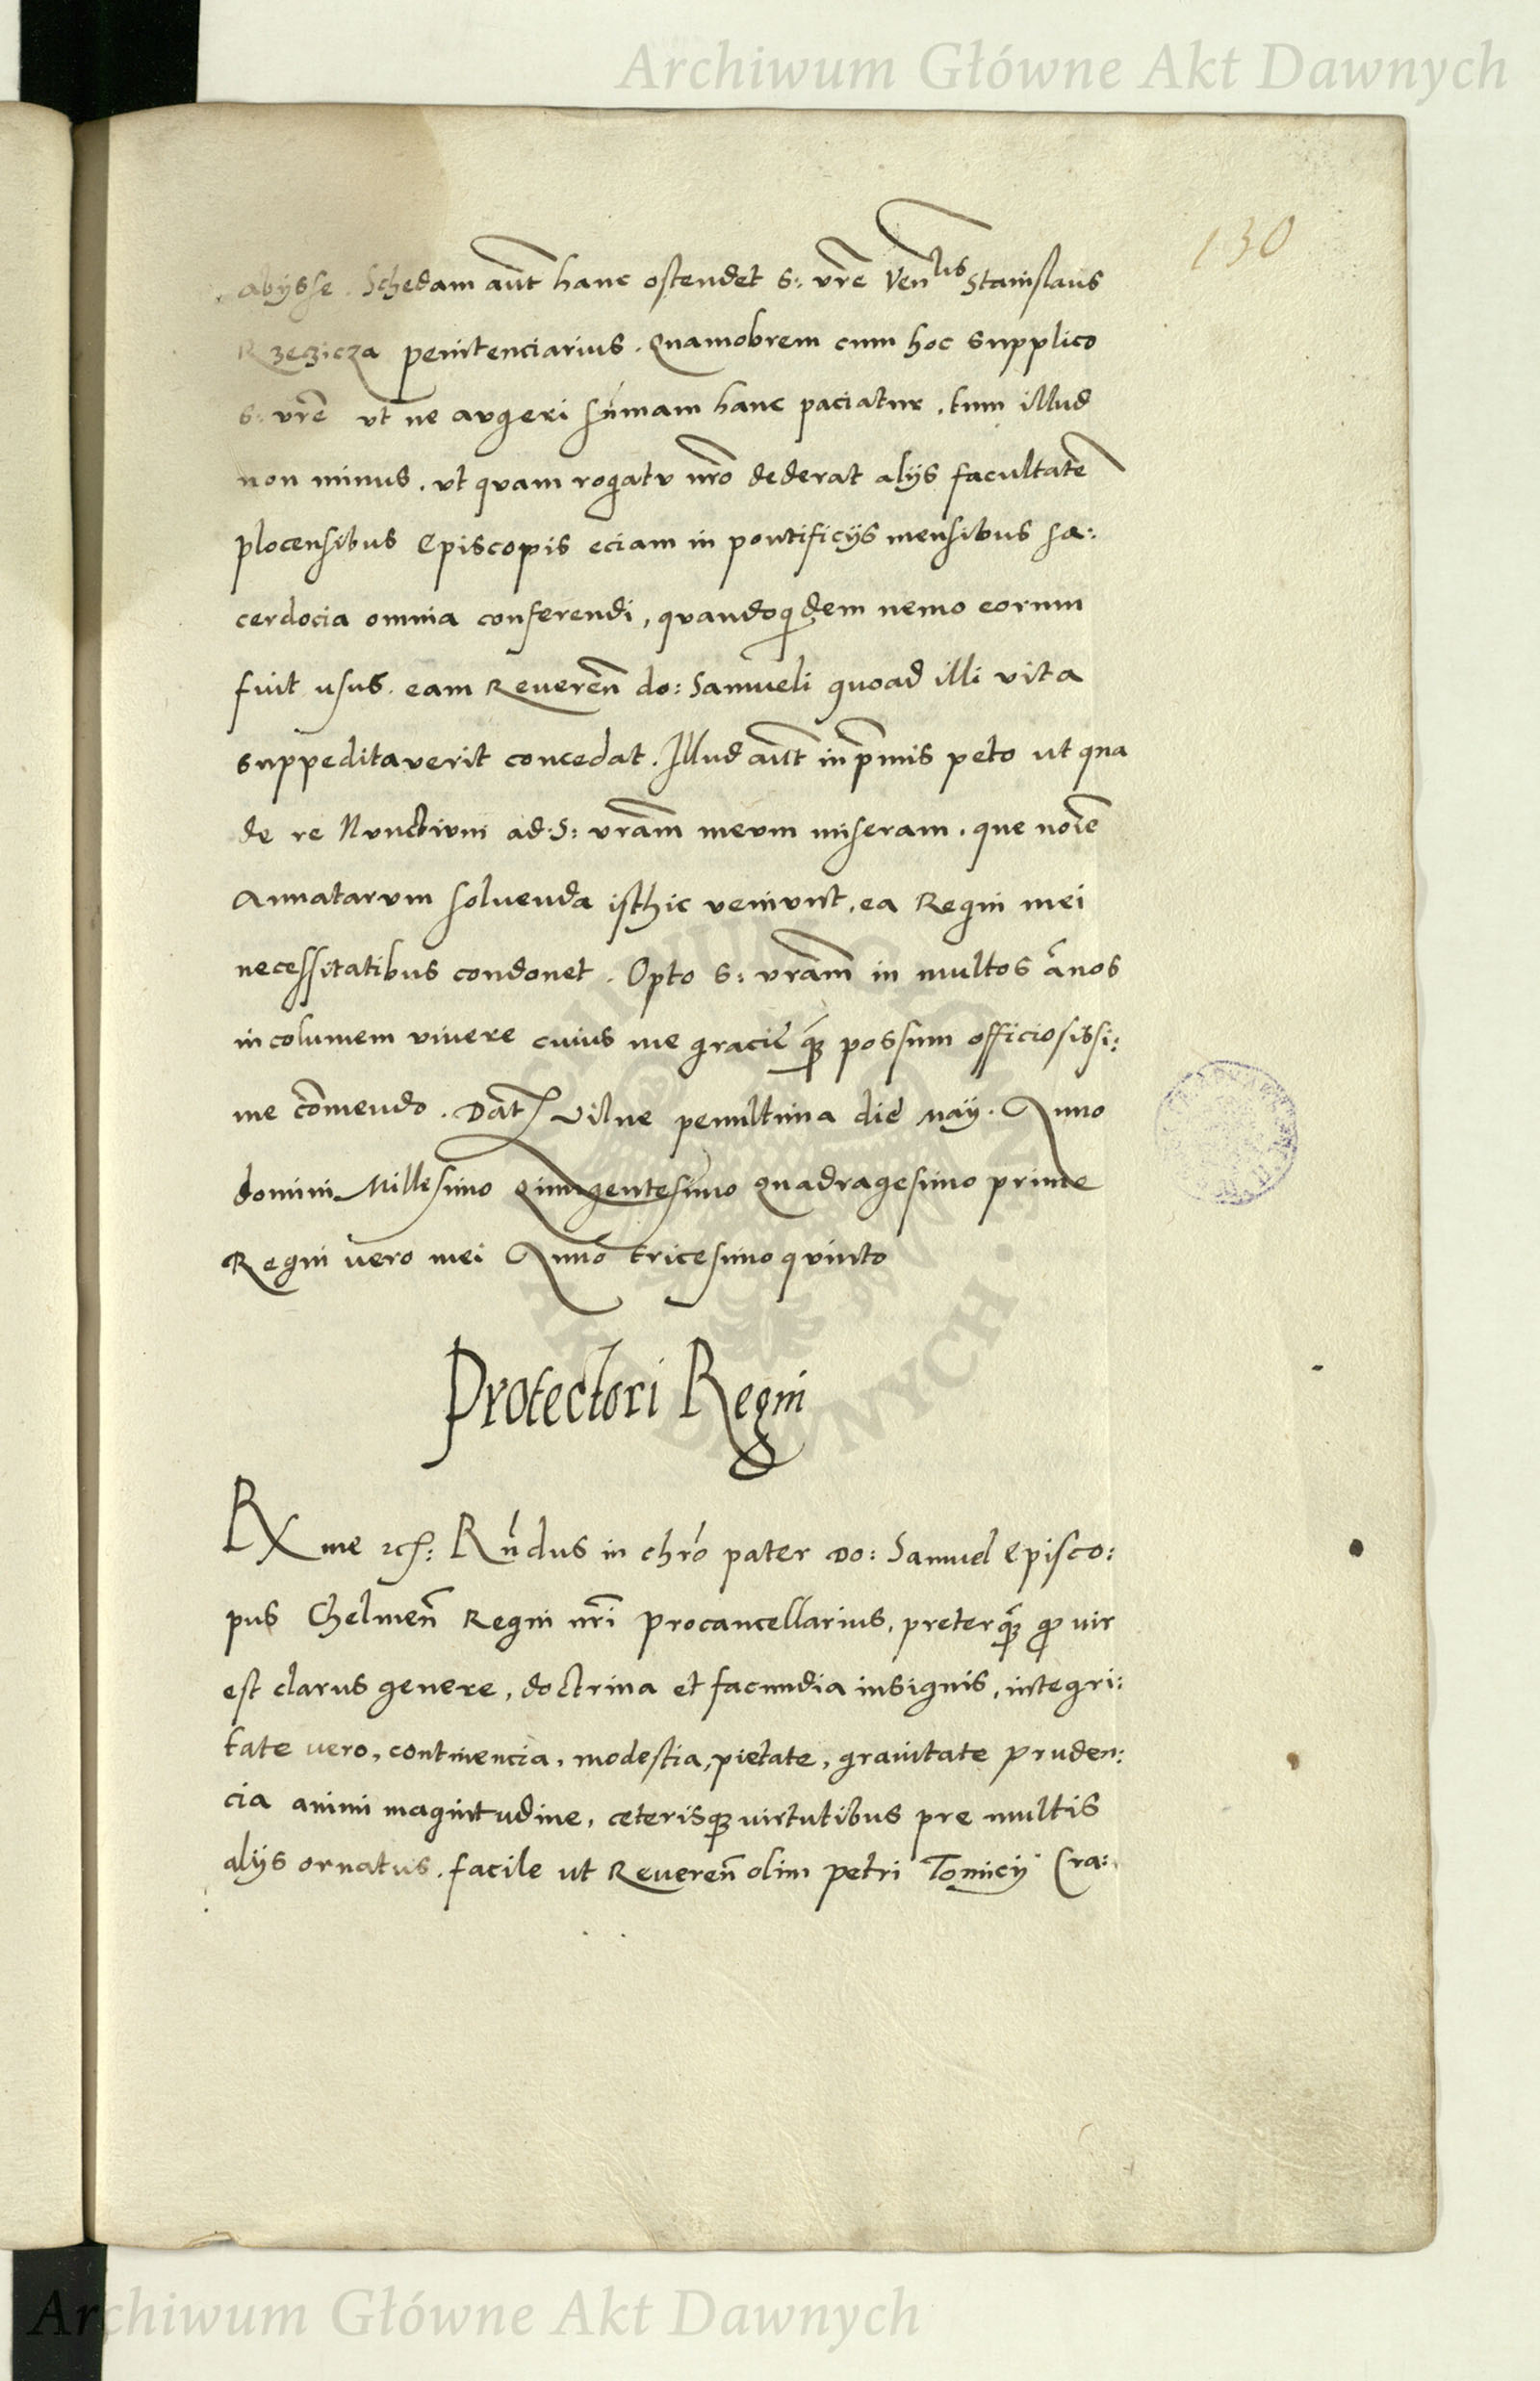 Archiwum Główne Akt Dawnych
130
abijsse. Schedam aut̃ hanc ostendet S: vre͂ Ven^lis Stanislaus
Rzeczicza penitenciarius. Quamobrem cum hoc supplico
S: vre͂ vt ne avgeri sum̃am hanc paciatur, tum illud
non minus, vt qvam rogatv nr̃o dederat alijs facultate͂
plocensibus Episcopis eciam in pontificijs mensibus sa:
cerdocia omnia conferendi, qvandoqͥdem nemo eorum
fuit usus. eam Reveren͂ do: Samueli quoad illi vita
suppeditaverit concedat. Illud aut̃ in pͥmis peto ut qua
de re Nvnctivm ad S: vram͂ mevm miseram, que noi͂e
Annatarvm soluenda isthic venivnt, ea Regni mei
necessitatibus condonet. Opto S: vram͂ in multos an͂os
incolumem vivere cvius me gracie qꝫ possum officiosissi:
me com͂endo. Dat͂ Vilne penultima die Maij. Anno
domini Millesimo Qvingentesimo Qvadragesimo prime
Regni vero mei Anno tricesimo qvinto
Protectori Regni
Rx me ꝛc: Rn͂dus in chr̃o pater Do: Samuel Episco:
pus Chelmen͂ Regni nr̃i Procancellarius, preterqꝫ ꝙ vir
est clarus genere, doctrina et facundia insignis, integri:
tate vero, continencia, modestia, pietate, gravitate pruden:
cia animi magnitudine, ceterisqꝫ virtutibus pre multis
alijs ornatus, facile ut Reveren͂ olim Petri Tomicij Cra:
Archiwum Główne Akt Dawnych